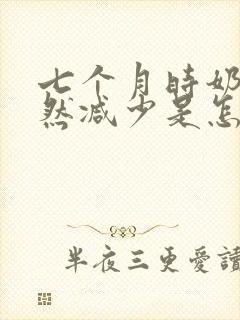 七个月时奶
然减少是怎
半夜三更爱读